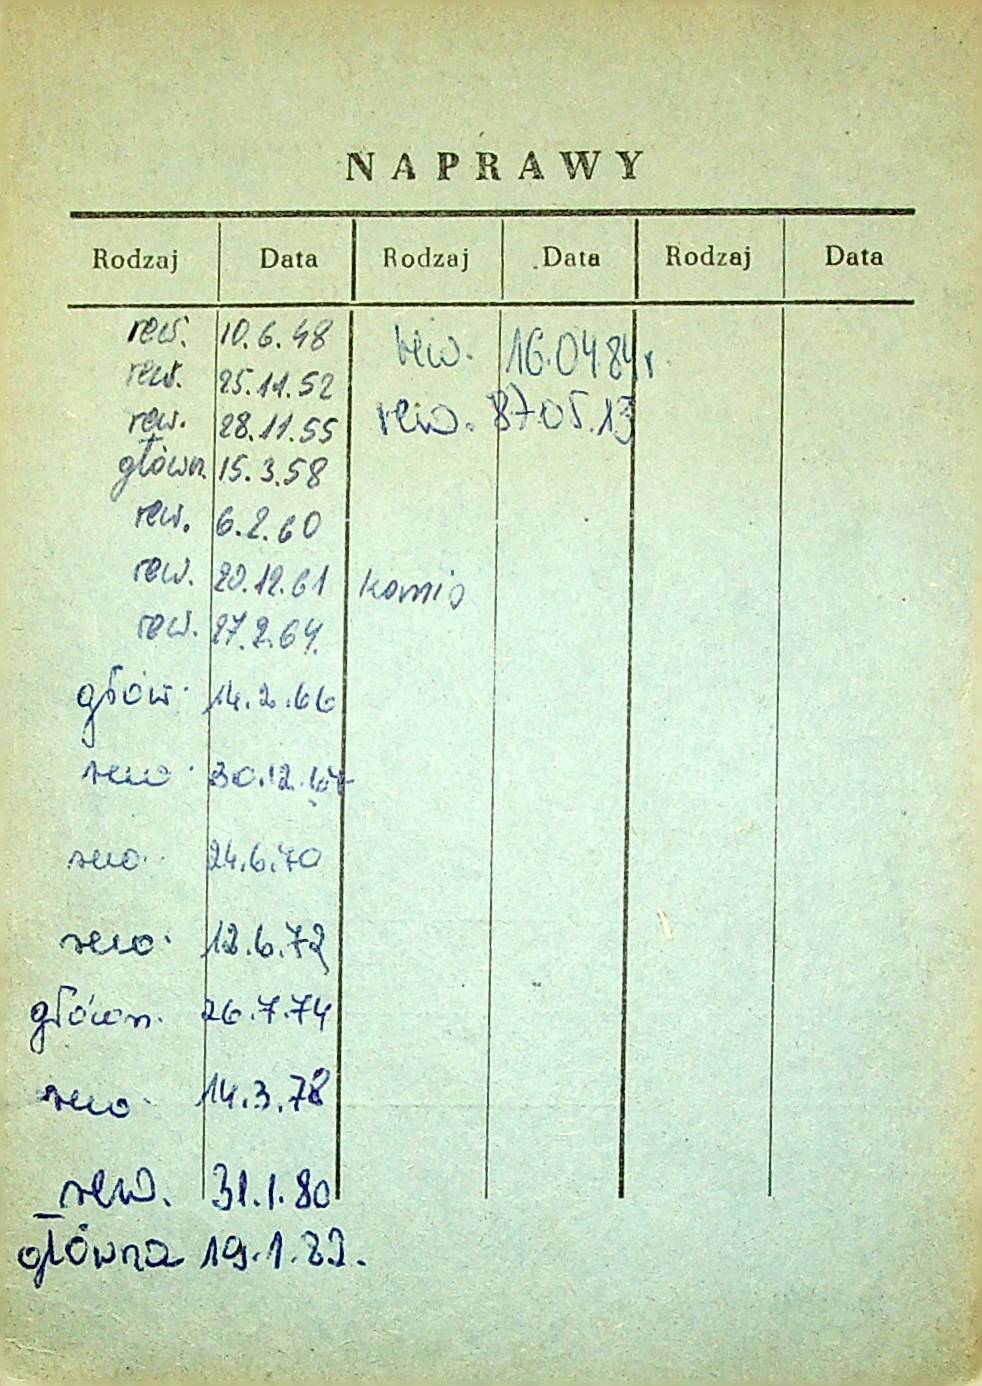 NAPRAWY
Rodzaj Data Rodzaj Data Rodzaj Data
rew. 10.6.48
rew. 25.11.52
rew. 28.11.55
główn. 15.3.58
rew. 6.2.60
rew. 20.12.61
rew. 27.2.64.
głów. 14.2.66
rew. 30.12.67
rew. 24.6.70
rew. 12.6.72
główn. 26.7.74
rew. 14.3.78
rew. 31.1.80
główna 19.1.82.
rew. 16.04 84r.
rew. 87.05.13
komis